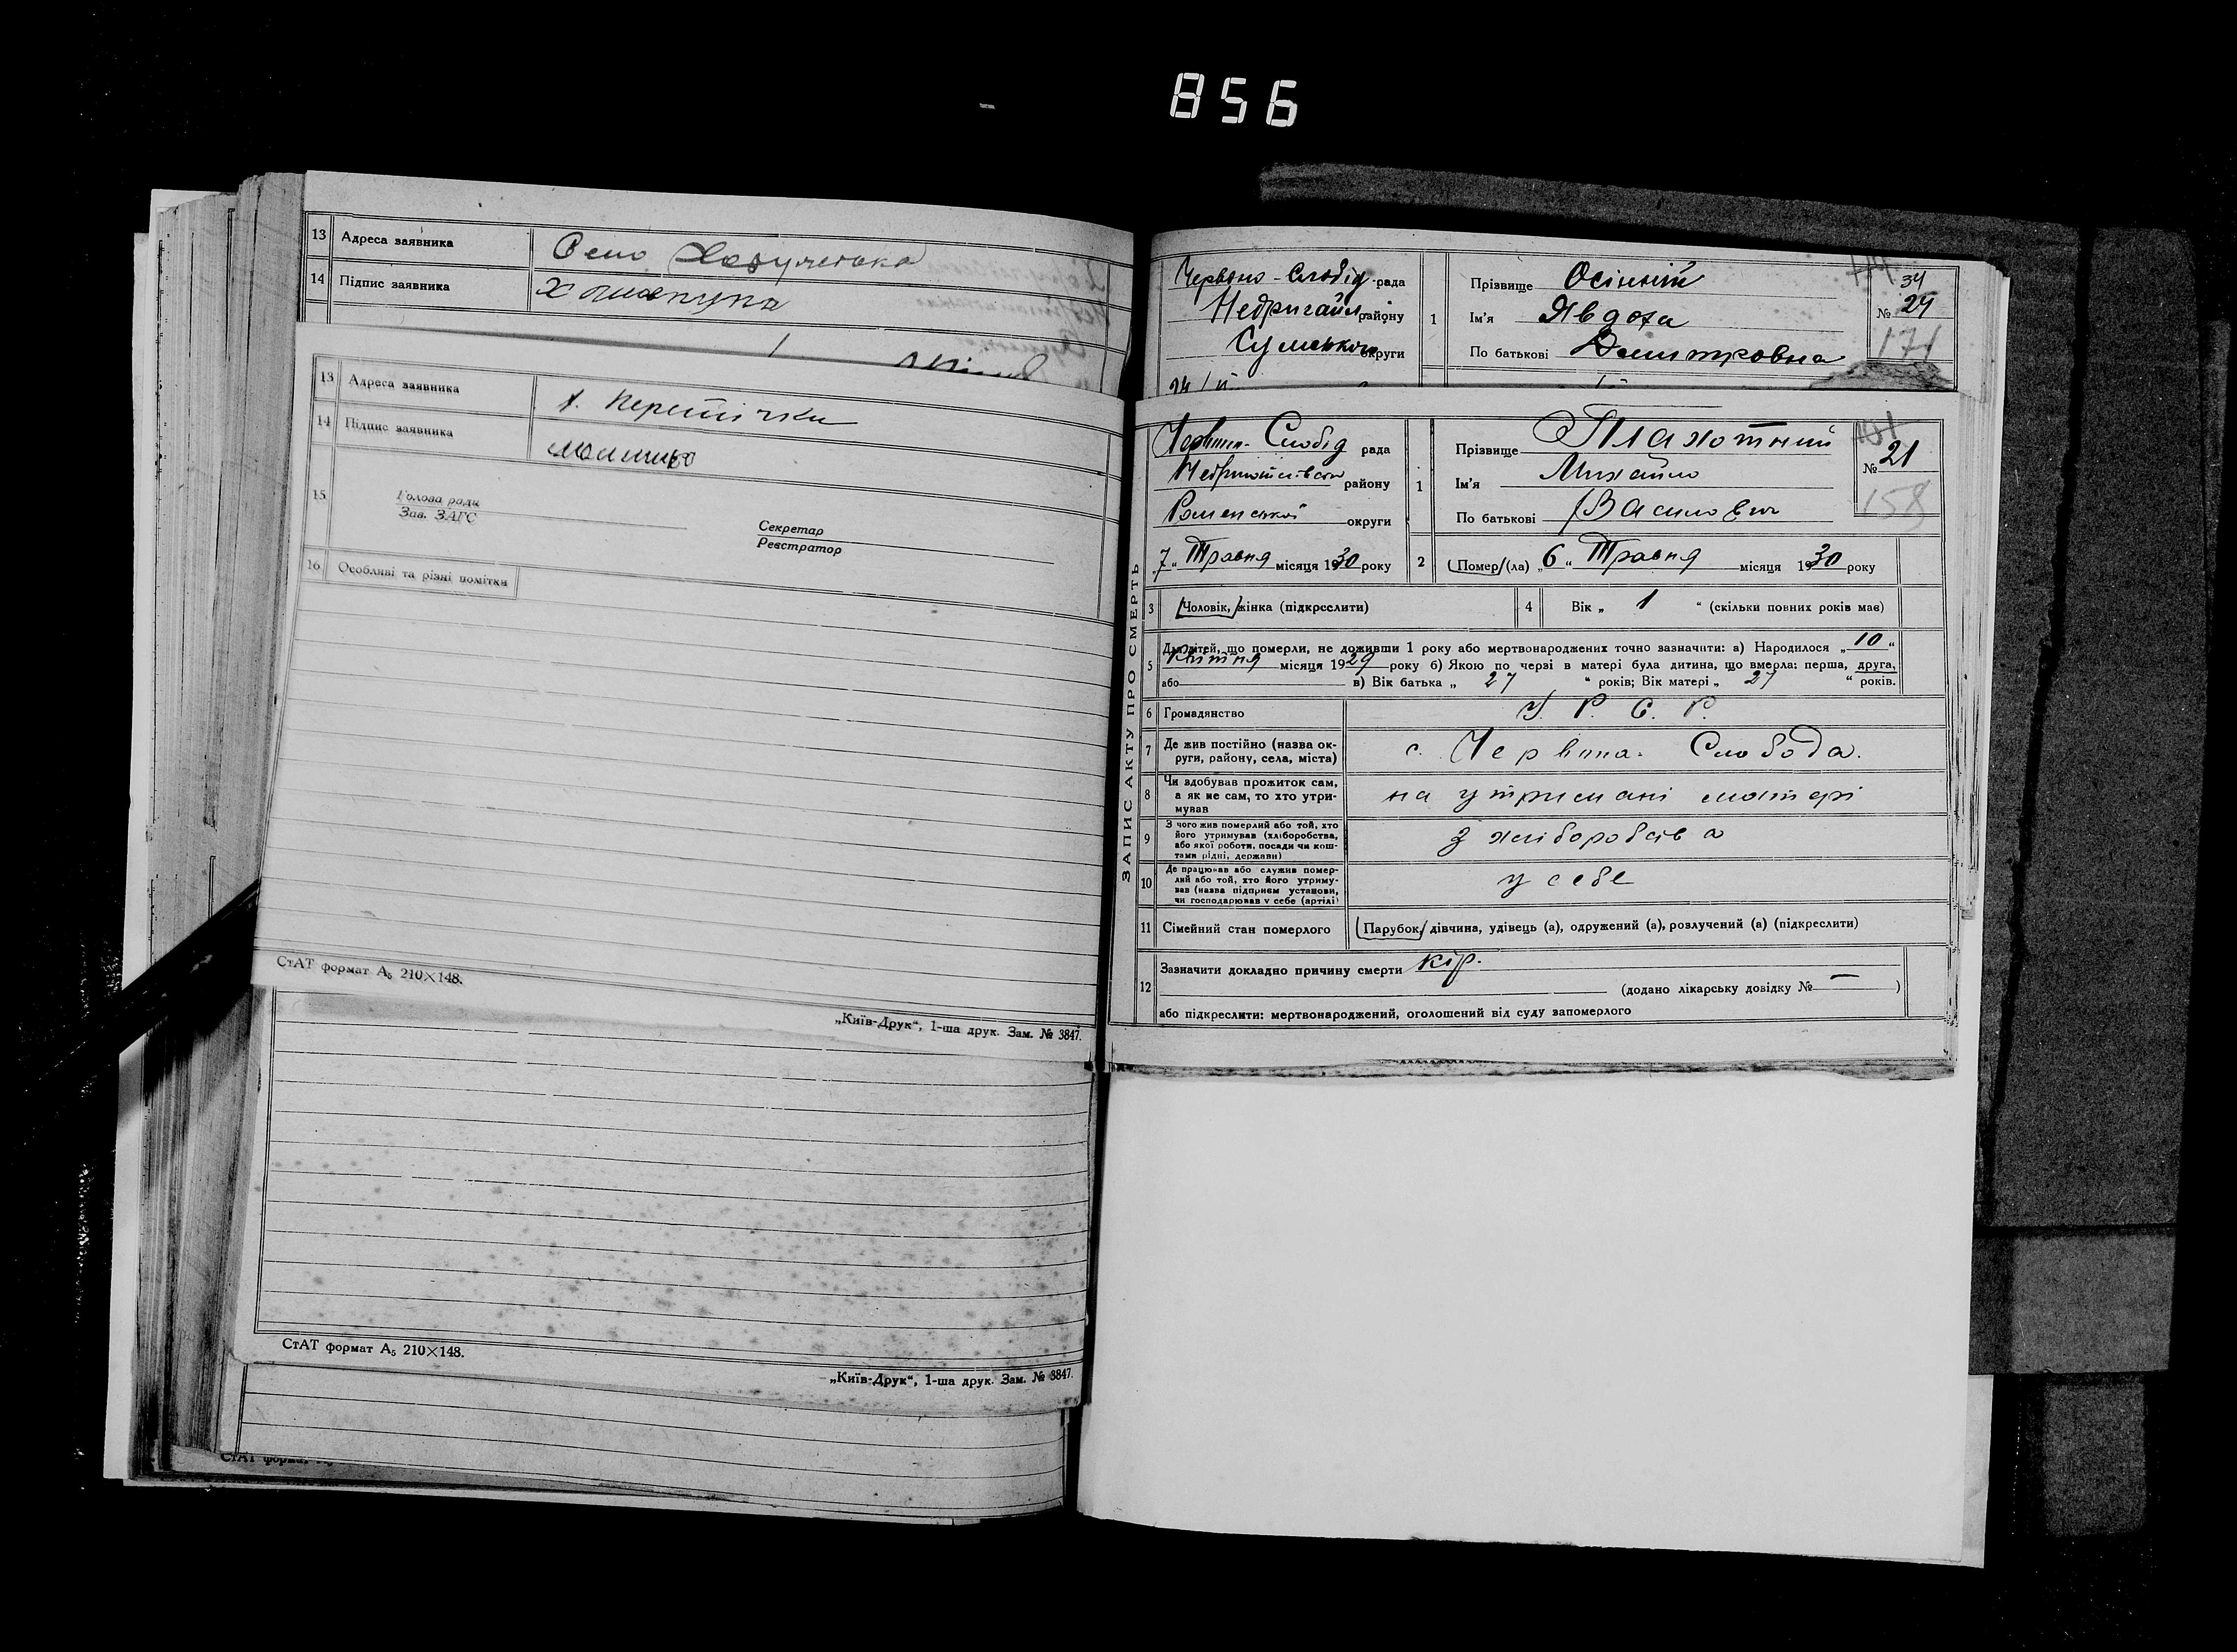 856
13 Адреса заявника Село
14 Підпис заявника
13 Адреса заявника х. Перетічки
14 Підпис заявника
15 Голова ради
Зав. ЗАГС
Секретар
Реєстратор
16 Особливі та різні помітки
СтАТ формат А5 210×148.
„Київ-Друк“, 1-ша друк. Зам. № 3847.
СтАТ формат А5 210×148.
„Київ-Друк“, 1-ша друк. Зам. № 3847.
СтАТ формат
Червоно-Слобід. рада
Недригайл району
Сумської округи
1 Прізвище Осінній
Ім'я Явдоха
По батькові Демитровна
34
№ 24
171
ЗАПИС АКТУ ПРО СМЕРТЬ
Червоно-Слобід рада
району
Роменської округи
„7“ Травня місяця 1930 року
1 Прізвище Плахотний
Ім'я Михайло
По батькові Василович
№ 21
158
2 Помер (ла) „6“ Травня місяця 1930 року
3 Чоловік, жінка (підкреслити)
4 Вік „ 1 “ (скільки повних років має)
5 Для дітей, що померли, не доживши 1 року або мертвонароджених точно зазначити: а) Народилося „10“
Квітня місяця 1929 року б) Якою по черзі в матері була дитина, що вмерла: перша, друга,
або в) Вік батька „ 27 “ років; Вік матері „ 27 “ років.
6 Громадянство У. Р. С. Р.
7 Де жив постійно (назва округи, району, села, міста) с. Червона Слобода.
8 Чи здобував прожиток сам, а як не сам, то хто утримував на утримані матері
9 З чого жив померлий або той, хто його утримував (хліборобства, або якої роботи, посади чи коштами рідні, держави) з хліборобсів а
10 Де працював або служив померлий або той, хто його утримував (назва підприєм установи, чи господарював у себе (артілі) у себе
11 Сімейний стан померлого Парубок, дівчина, удівець (а), одружений (а), розлучений (а) (підкреслити)
12 Зазначити докладно причину смерти кір.
(додано лікарську довідку № — )
або підкреслити: мертвонароджений, оголошений від суду запомерлого